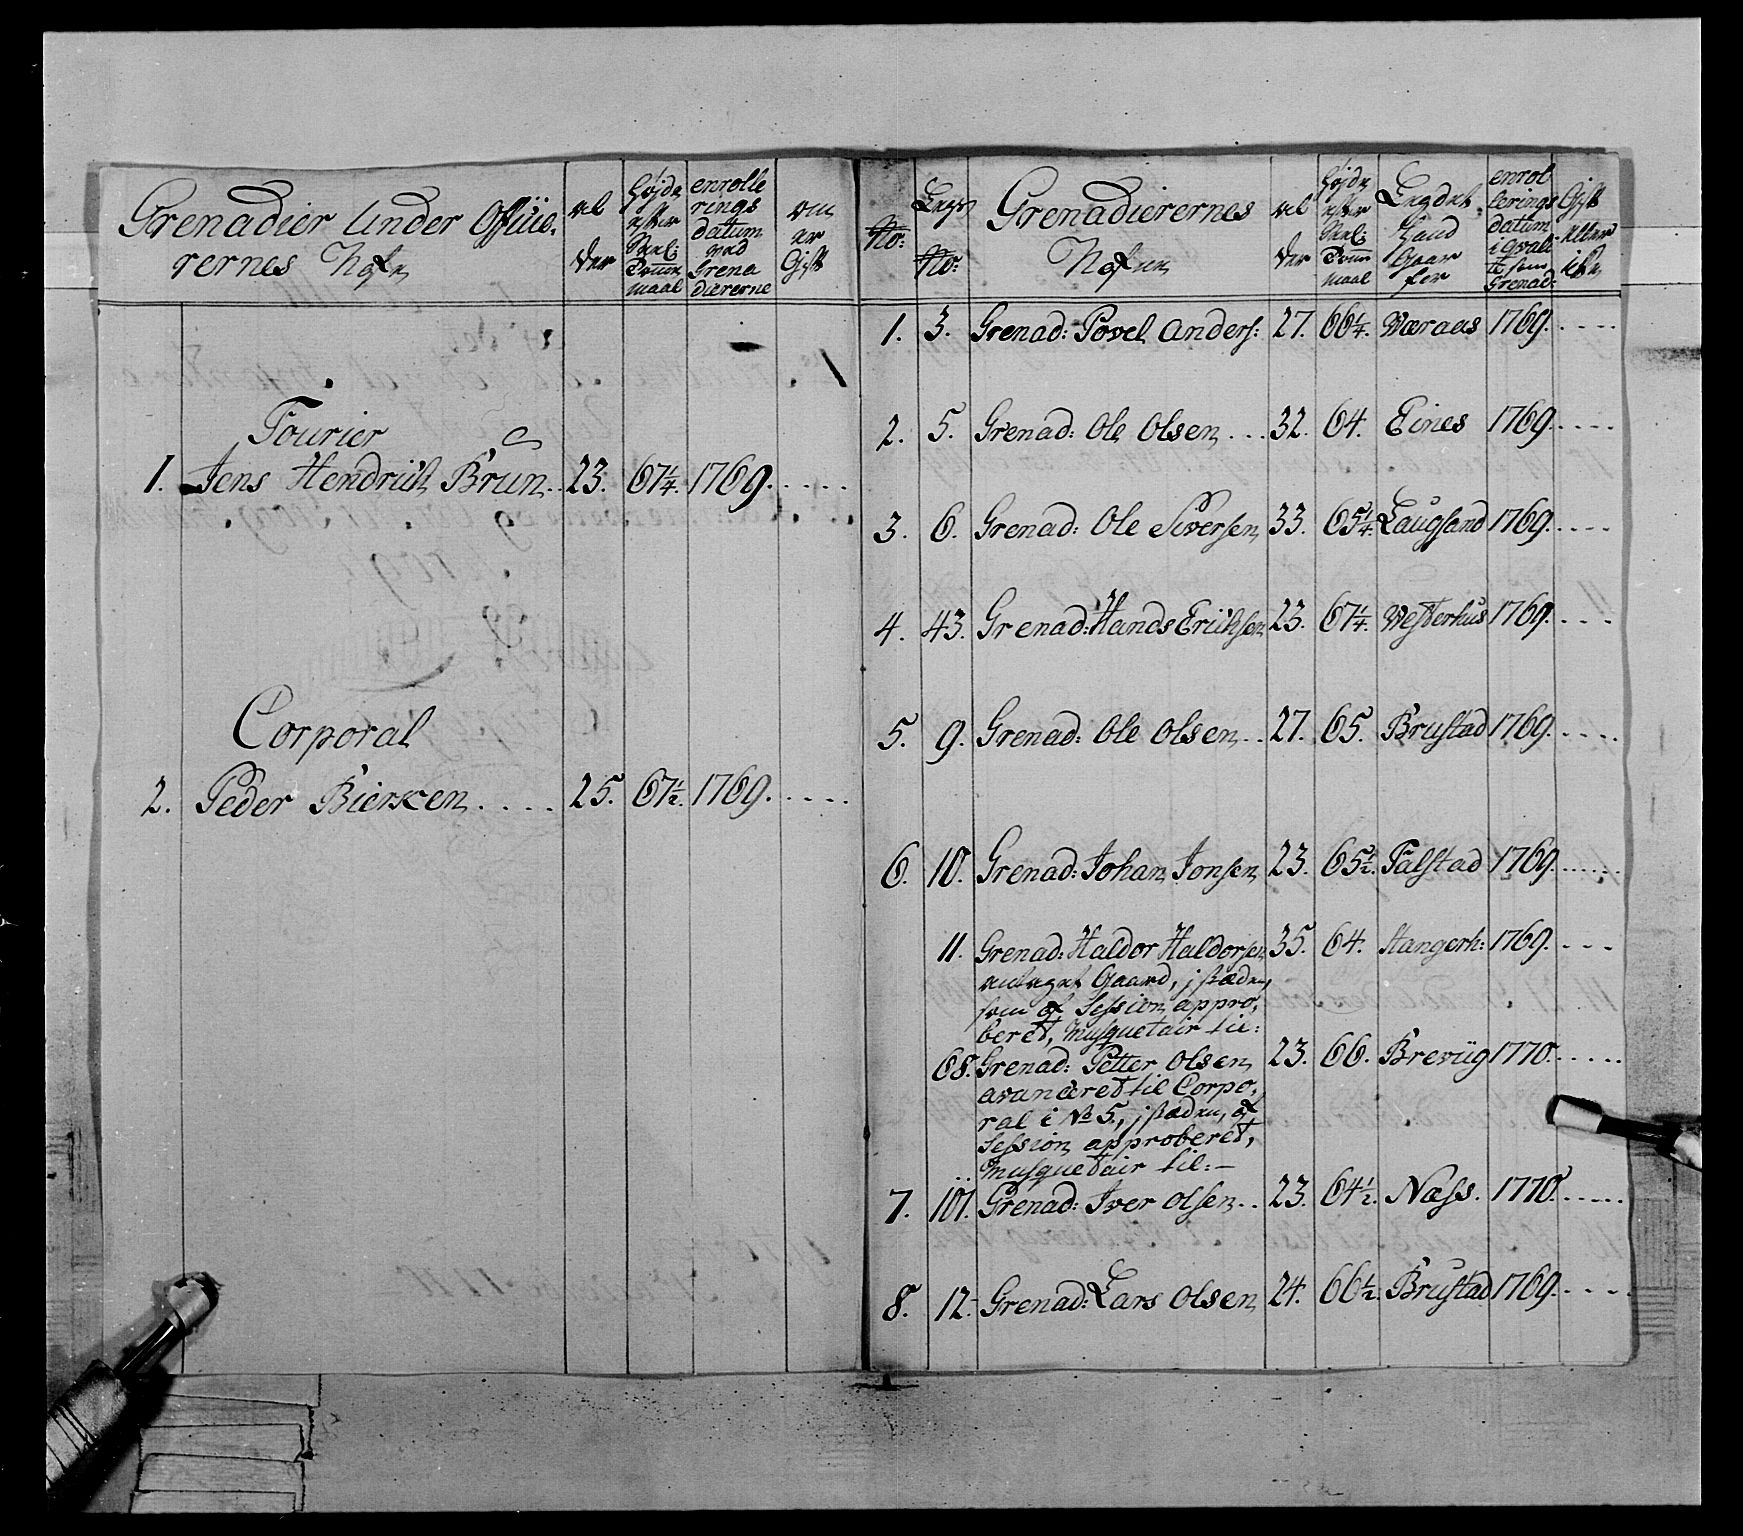 Grenadier Under Officie-
rernes Nafn
al
der
Højde
efter
Sæl:
Tomme
maal
enrolle
rings
datum
ved
Grena
diererne
om
er
Gift
Fourier
1. Jens Hendrich Brun.. 23. 67 1/4. 1769. . . . .
Corporal
2. Peder Biersen. . . . 25. 67 1/2. 1769. . . . .
No:
Lægs
No:
Grenadierernes
Nafn
al
der
Højde
efter
Sæl:
Tomme
maal
Lægdets
Gaar
enrol
lerings
datum
i qvali-
te som
Grenad:
Gift
eller
ikke
1. 3. Grenad: Povel Anders: 27. 66 1/4. Væraas 1769. . . . .
2. 5. Grenad: Ole Olsen . . . 32. 64. Eines 1769. . . . .
3. 6. Grenad: Ole Siversen 33. 65 1/4. Laugsand 1769. . . . .
4. 43. Grenad: Hands Erichsen 23. 67 1/4. Westerhus 1769. . . .
5. 9. Grenad: Ole Olsen. . 27. 65. Brustad 1769. . . . .
6. 10. Grenad: Johan Jonsen 23. 65 1/2. Falstad 1769. . . . .
11. Grenad: Haldor Haldorsen 35. 64. Stangerh: 1769. . . .
antaget Gaard, i stæden
som af Session appro-
beret, Musquetair til:
68. Grenad: Petter Olsen 23. 66. Brevüg 1770. . . . .
avanceret til Corpo-
ral i No 5, i stæden, af
Session approberet,
Musquetair til: —
7. 101. Grenad: Iver Olsen. . 23. 64 1/2. Næss. 1770. . . . .
8. 12. Grenad: Lars Olsen 24. 66 1/2. Brustad 1769. . . . .